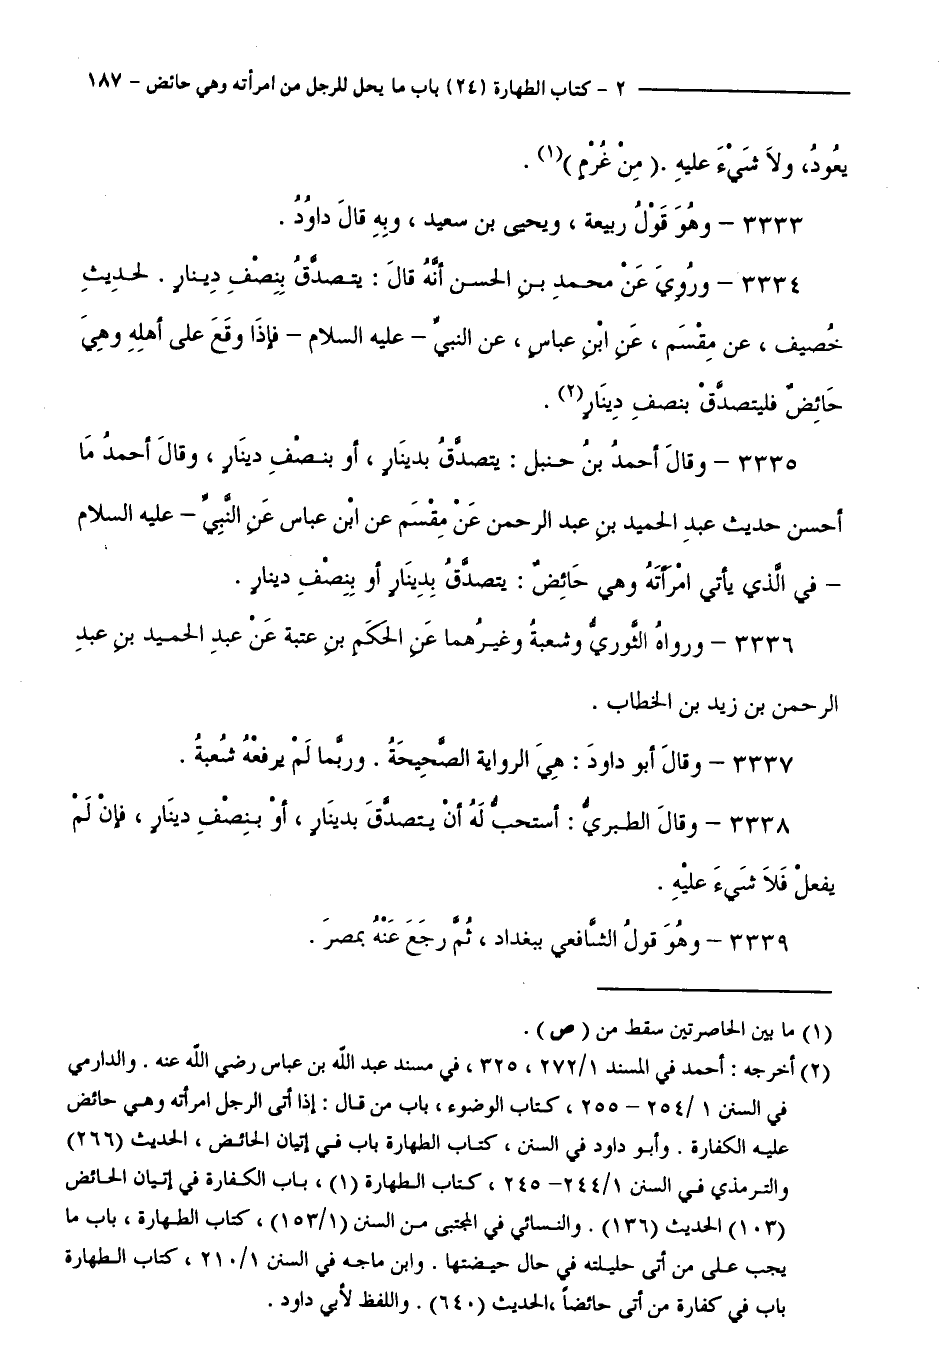 ٢ - كتاب الطهارة (٢٤) باب ما يحل للرجل من امرأته وهي حائض - ١٨٧
يعُودُ، ولاَ شَيْءَ عليهِ .( مِنْ غُرْمٍ )(١) .
٣٣٣٣ - وهُوَ قَوْلُ ربيعة ، ويحيى بن سعيد ، وبِهِ قالَ داوُدُ .
٣٣٣٤ - ورُوِيَ عَنْ محمدِ بنِ الحسن أنَّهُ قالَ : يتصدَّقُ بِنِصْفِ دِينارٍ . لحديثِ
خُصيف ، عن مِقْسَم ، عَنِ ابْنِ عباسٍ ، عن النبيِّ - عليه السلام - فإذَا وقَعَ على أهلِهِ وهِيَ
حَائِضٌ فليتصدَّقْ بنصفِ دِينَارٍ(٢) .
٣٣٣٥ - وقالَ أحمدُ بنُ حنبل : يتصدَّقُ بدينَارٍ ، أو بنصْفِ دينَارٍ ، وقالَ أحمدُ مَا
أحسن حديث عبدِ الحميد بنِ عبد الرحمن عَنْ مِقْسَم عن ابْن عباس عَنِ النَّبِيِّ - عليه السلام
- في الَّذي يأتي امْرأَتَهُ وهي حَائِضٌ : يتصدَّقُ بِدِينَارٍ أو بِنِصْفِ دينارٍ .
٣٣٣٦ - ورواهُ الثَّوريُّ وشعبةُ وغيرُهما عَنِ الحَكَمِ بنِ عتبة عَنْ عبدِ الحميد بنِ عبدِ
الرحمن بن زيد بن الخطاب .
٣٣٣٧ - وقالَ أبو داودَ : هِيَ الرواية الصَّحِيحَةُ . وربَّما لَمْ يرفعْهُ شُعبةُ .
٣٣٣٨ - وقالَ الطبريُّ : أستحبُّ لَهُ أنْ يتصدَّقَ بدينَارٍ ، أوْ بنِصْفِ دينَارٍ ، فإنْ لَمْ
يفعلْ فَلاَ شَيءَ عليْهِ .
٣٣٣٩ - وهُوَ قولُ الشَّافعي ببغداد ، ثُمَّ رجَعَ عَنْهُ بمصرَ .
(١) ما بين الحاصرتين سقط من ( ص ) .
(٢) أخرجه : أحمد في المسند ٢٧٢/١ ، ٣٢٥ ، في مسند عبد اللَّه بن عباس رضي اللَّه عنه . والدارمي
في السنن ١ /٢٥٤ - ٢٥٥ ، كتاب الوضوء ، باب من قال : إذا أتى الرجل امرأته وهي حائض
عليه الكفارة . وأبو داود في السنن ، كتاب الطهارة باب في إتيان الحائض ، الحديث (٢٦٦)
والترمذي في السنن ٢٤٤/١- ٢٤٥ ، كتاب الطهارة (١) ، باب الكفارة في إتيان الحائض
(١٠٣) الحديث (١٣٦) . والنسائي في المجتبى من السنن (١٥٣/١) ، كتاب الطهارة ، باب ما
يجب على من أتى حليلته في حال حيضتها . وابن ماجه في السنن ٢١٠/١ ، كتاب الطهارة
باب في كفارة من أتى حائضاً ،الحديث (٦٤٠) . واللفظ لأبي داود .